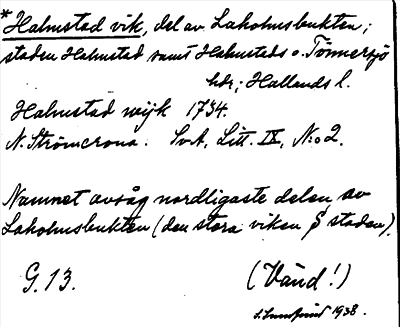 *Halmstad vik, del av Laholmsbukten;
staden Halmstad samt Halmstads o. Tönnersjö
hdr; Hallands l.
Halmstad wijk 1734.
N. Strömcrona. SvA, Litt. IX, N:o 2.
Namnet avsåg nordligaste delen av
Laholmsbukten (den stora viken § staden).
G. 13. (Vänd!)
1938.